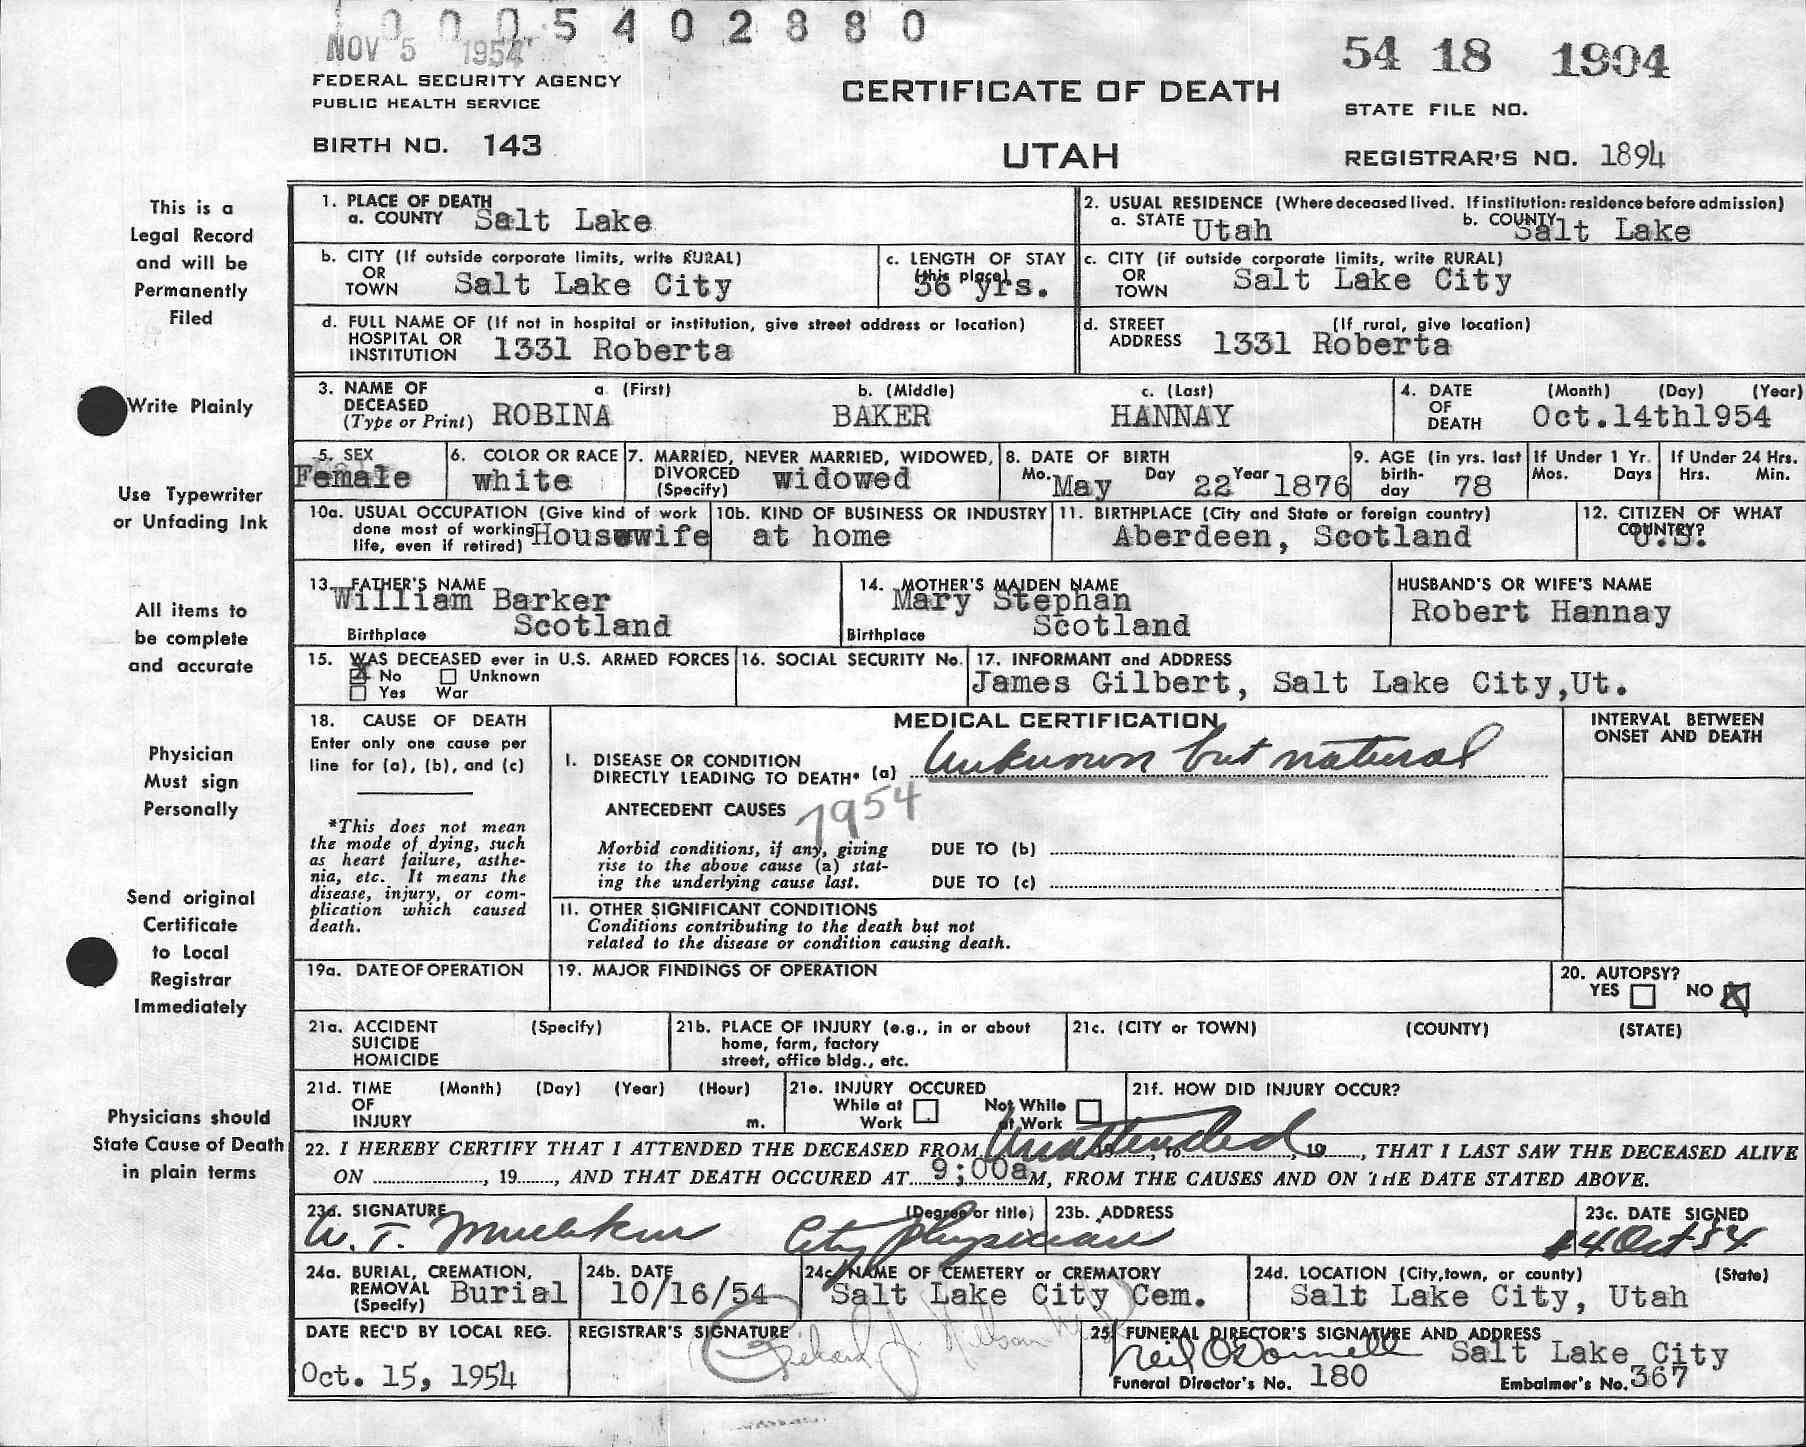 0005402880
NOV 5 1954
54 18 1904
FEDERAL SECURITY AGENCY
PUBLIC HEALTH SERVICE
CERTIFICATE OF DEATH
STATE FILE NO.
BIRTH NO. 143
UTAH
REGISTRAR'S NO. 1894
This is a
Legal Record
and will be
Permanently
Filed
Write Plainly
Use Typewriter
or Unfading Ink
All items to
be complete
and accurate
Physician
Must sign
Personally
Send original
Certificate
to Local
Registrar
Immediately
Physicians should
State Cause of Death
in plain terms
1. PLACE OF DEATH
a. COUNTY Salt Lake
2. USUAL RESIDENCE (Where deceased lived. If institution: residence before admission)
a. STATE Utah b. COUNTY Salt Lake
b. CITY (If outside corporate limits, write RURAL)
OR
TOWN Salt Lake City
c. LENGTH OF STAY
(this place)
36 yrs.
c. CITY (if outside corporate limits, write RURAL)
OR
TOWN Salt Lake City
d. FULL NAME OF (If not in hospital or institution, give street address or location)
HOSPITAL OR
INSTITUTION 1331 Roberta
d. STREET (If rural, give location)
ADDRESS 1331 Roberta
3. NAME OF a. (First) b. (Middle) c. (Last)
DECEASED
(Type or Print) ROBINA BAKER HANNAY
4. DATE (Month) (Day) (Year)
OF
DEATH Oct.14th1954
5. SEX
Female
6. COLOR OR RACE
white
7. MARRIED, NEVER MARRIED, WIDOWED,
DIVORCED
(Specify) widowed
8. DATE OF BIRTH
Mo. May Day 22 Year 1876
9. AGE (in yrs. last
birth-
day 78
If Under 1 Yr.
Mos. Days
If Under 24 Hrs.
Hrs. Min.
10a. USUAL OCCUPATION (Give kind of work
done most of working
life, even if retired) Housewife
10b. KIND OF BUSINESS OR INDUSTRY
at home
11. BIRTHPLACE (City and State or foreign country)
Aberdeen, Scotland
12. CITIZEN OF WHAT
COUNTRY?
U.S.
13. FATHER'S NAME
William Barker
Birthplace Scotland
14. MOTHER'S MAIDEN NAME
Mary Stephan
Birthplace Scotland
HUSBAND'S OR WIFE'S NAME
Robert Hannay
15. WAS DECEASED ever in U.S. ARMED FORCES
No Unknown
Yes War
16. SOCIAL SECURITY No.
17. INFORMANT and ADDRESS
James Gilbert, Salt Lake City,Ut.
18. CAUSE OF DEATH
Enter only one cause per
line for (a), (b), and (c)
*This does not mean
the mode of dying, such
as heart failure, asthe-
nia, etc. It means the
disease, injury, or com-
plication which caused
death.
MEDICAL CERTIFICATION
I. DISEASE OR CONDITION
DIRECTLY LEADING TO DEATH* (a) Unknown but natural
ANTECEDENT CAUSES 1954
Morbid conditions, if any, giving
rise to the above cause (a) stat-
ing the underlying cause last.
DUE TO (b)
DUE TO (c)
II. OTHER SIGNIFICANT CONDITIONS
Conditions contributing to the death but not
related to the disease or condition causing death.
INTERVAL BETWEEN
ONSET AND DEATH
19a. DATE OF OPERATION
19. MAJOR FINDINGS OF OPERATION
20. AUTOPSY?
YES NO X
21a. ACCIDENT (Specify)
SUICIDE
HOMICIDE
21b. PLACE OF INJURY (e.g., in or about
home, farm, factory
street, office bldg., etc.
21c. (CITY or TOWN) (COUNTY) (STATE)
21d. TIME (Month) (Day) (Year) (Hour)
OF
INJURY m.
21e. INJURY OCCURED
While at Work
Not While at Work
21f. HOW DID INJURY OCCUR?
22. I HEREBY CERTIFY THAT I ATTENDED THE DECEASED FROM Unattended, 19, to, 19, THAT I LAST SAW THE DECEASED ALIVE
ON, 19, AND THAT DEATH OCCURED AT 9:00a M, FROM THE CAUSES AND ON THE DATE STATED ABOVE.
23a. SIGNATURE (Degree or title)
W. T. City Physician
23b. ADDRESS
23c. DATE SIGNED
14 Oct 54
24a. BURIAL, CREMATION,
REMOVAL
(Specify) Burial
24b. DATE
10/16/54
24c. NAME OF CEMETERY or CREMATORY
Salt Lake City Cem.
24d. LOCATION (City,town, or county) (State)
Salt Lake City, Utah
DATE REC'D BY LOCAL REG.
Oct. 15, 1954
REGISTRAR'S SIGNATURE
Richard J. Nelson
25. FUNERAL DIRECTOR'S SIGNATURE AND ADDRESS
Neil O'Donnell Salt Lake City
Funeral Director's No. 180 Embalmer's No. 367